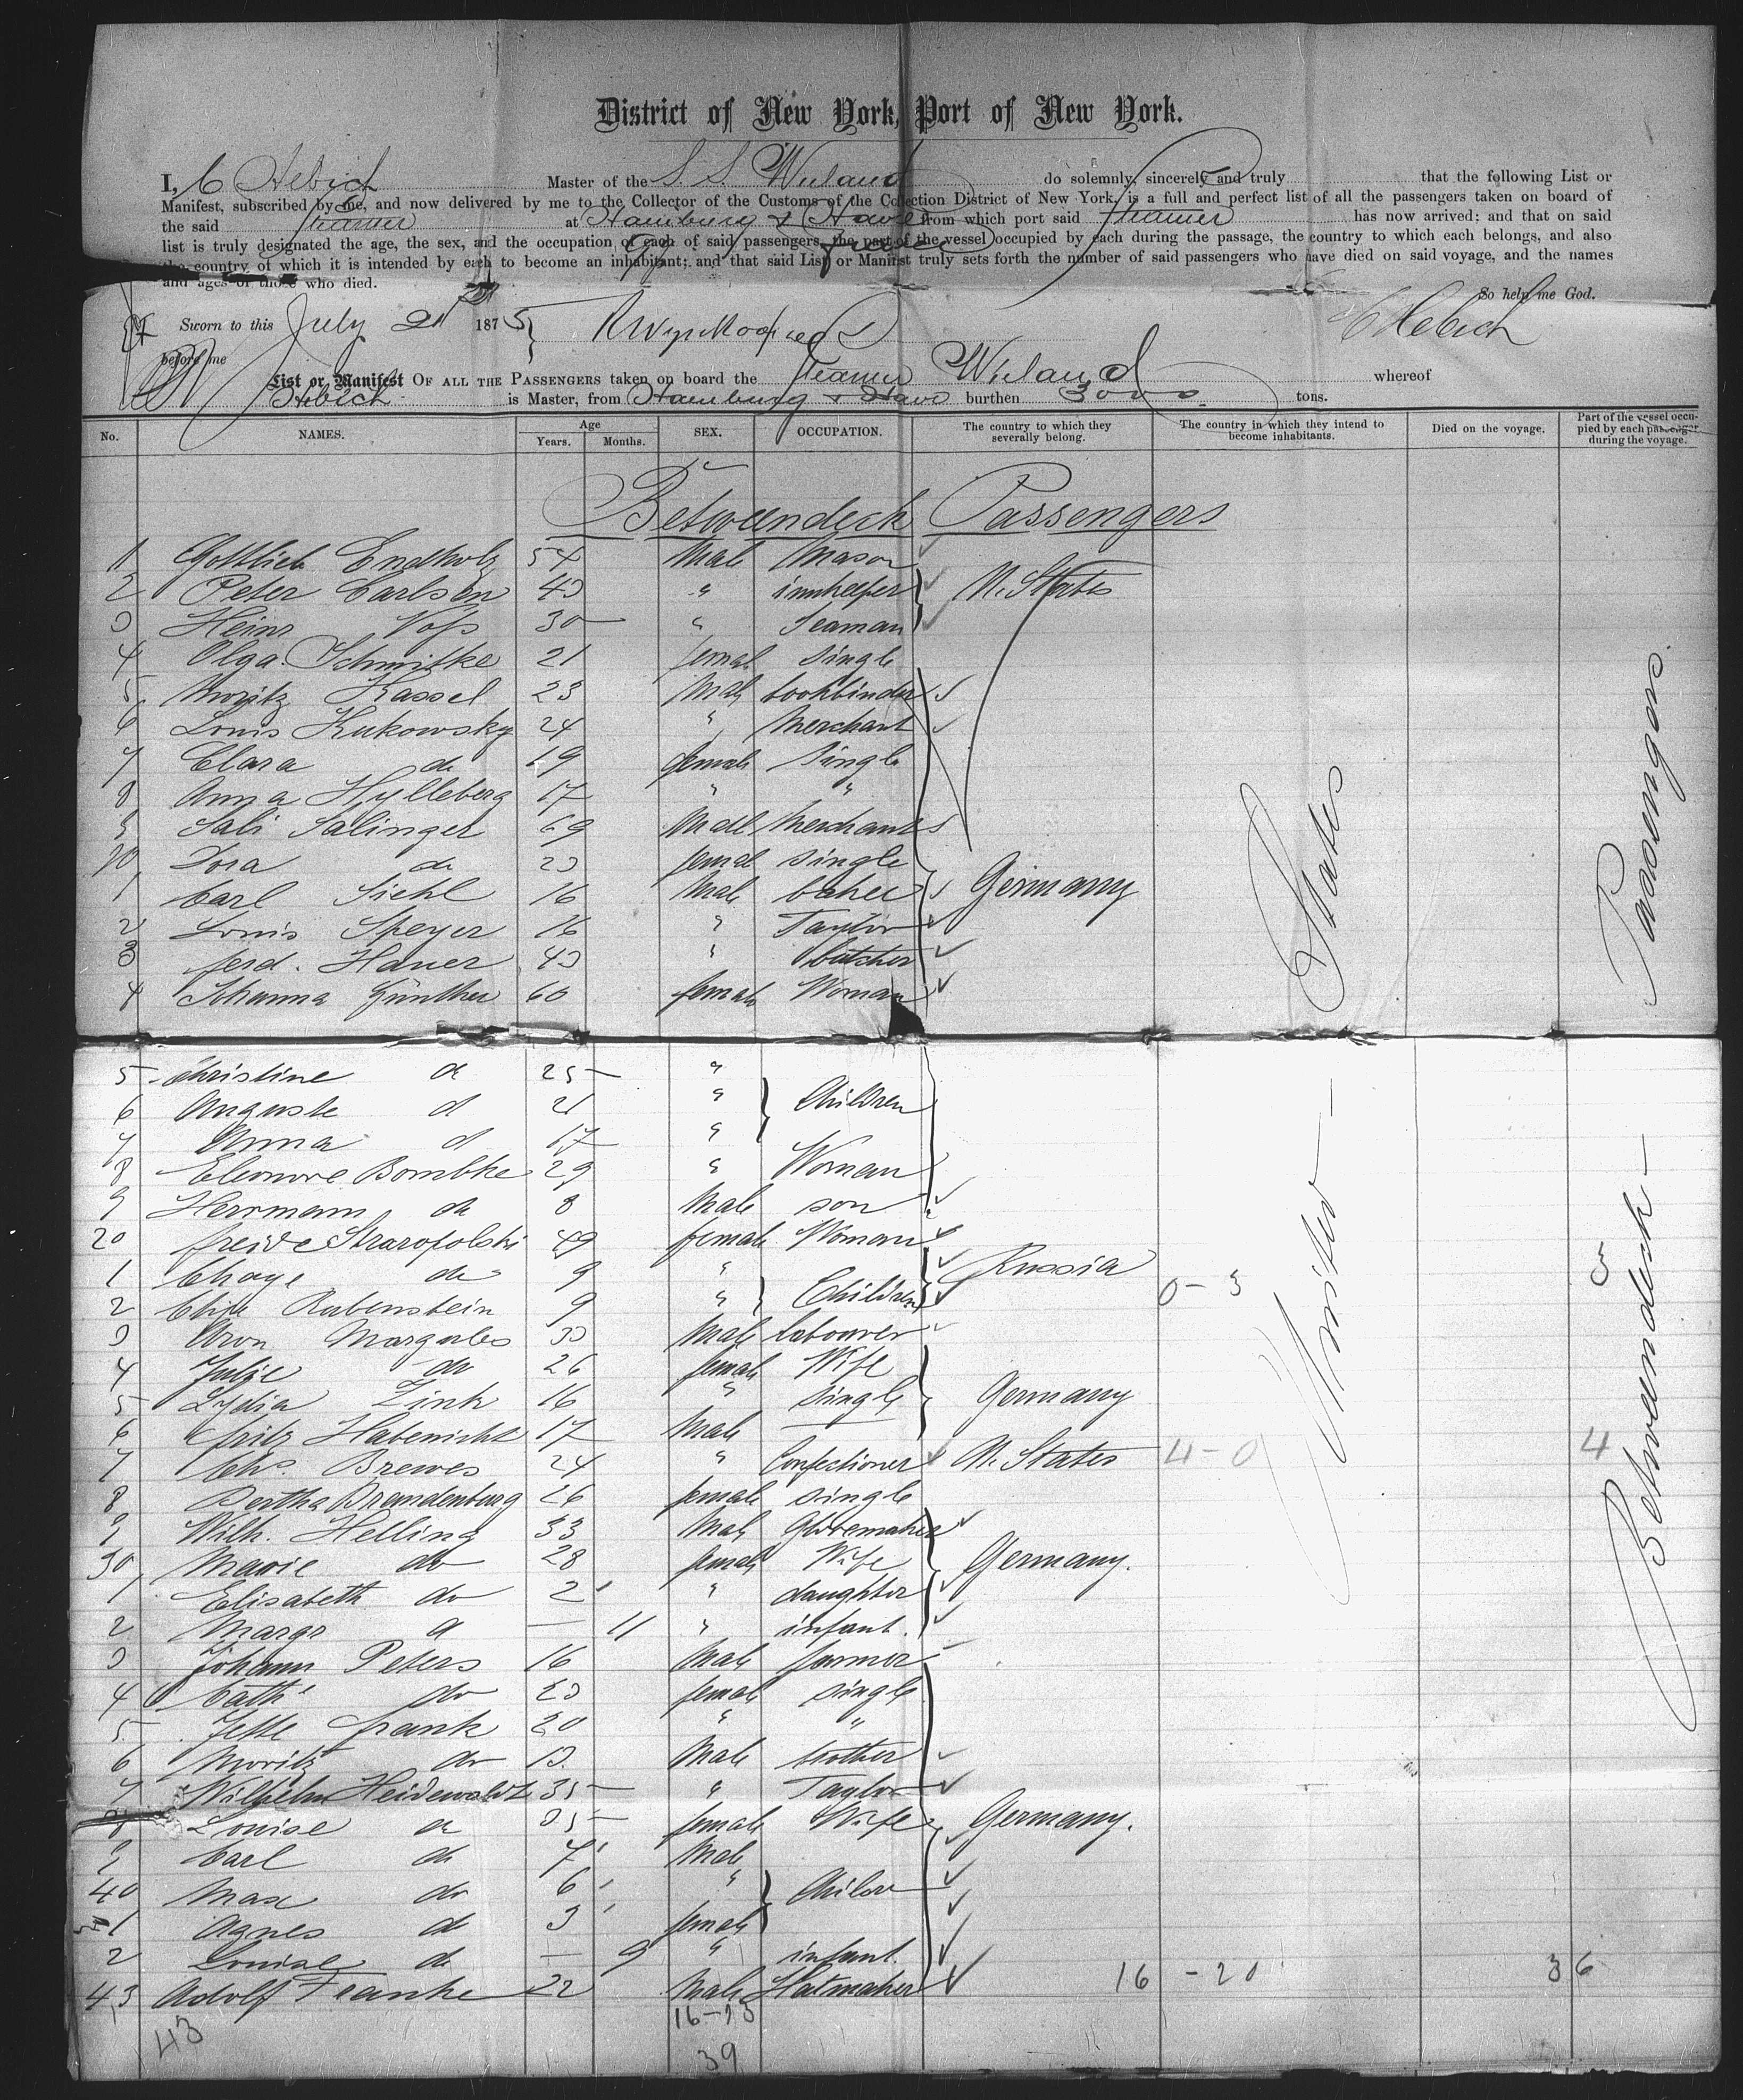 District of New York, Port of New York.
I, C Hebich Master of the S. S. Wieland do solemnly, sincerely and truly that the following List or
Manifest, subscribed by me, and now delivered by me to the Collector of the Customs of the Collection District of New York, is a full and perfect list of all the passengers taken on board of
the said Steamer at Hamburg & Havre from which port said Steamer has now arrived; and that on said
list is truly designated the age, the sex, and the occupation of each of said passengers, the part of the vessel occupied by each during the passage, the country to which each belongs, and also
the country of which it is intended by each to become an inhabitant; and that said List or Manifest truly sets forth the number of said passengers who have died on said voyage, and the names
and ages of those who died.
So help me God.
Sworn to this July 21 1875 C Hebich
before me
List or Manifest OF ALL THE PASSENGERS taken on board the Steamer Wieland whereof
Hebich is Master, from Hamburg & Havre burthen 3000 tons.
No. NAMES. Age Years. Months. SEX. OCCUPATION. The country to which they severally belong. The country in which they intend to become inhabitants. Died on the voyage. Part of the vessel occupied by each passenger during the voyage.
Betweendeck Passengers
1 Gottlieb Endholz 54 Male Mason
2 Peter Carlsen 43 " innkeeper U. States
3 Heinr Voss 30 " Seaman
4 Olga Schmitke 21 female single
5 Moritz Kassel 23 Male bookbinder
6 Louis Kukowsky 24 " Merchant
7 Clara do 19 female single
8 Anna Hylleberg 17 " "
9 Sali Salinger 69 Male Merchant
10 Dora do 23 femal single
1 Carl Siehl 16 Male baker Germany
2 Louis Speyer 16 " Taylor
3 ferd. Hauer 43 " butcher
4 Johanna Günther 60 female Woman
5 Christine do 25 "
6 Auguste d 21 " Children
7 Anna d 17 "
8 Eleonore Bombke 29 " Woman
9 Herrmann do 8 Male son
20 freide Straropolski 49 female Woman
1 Chaye do 9 " Russia
2 Chie Rubenstein 9 " Children 0-3 3
3 Aron Margules 33 Male labourer
4 Julie do 26 female Wife
5 Lydia Zink 16 " single Germany
6 fritz Habenicht 17 Male
7 Chs. Brewes 24 " Confectioner U. States 4-0 4
8 Bertha Brandenburg 26 female single
9 Wilh. Helling 33 Male Glovemaker
30 Marie do 28 female Wife Germany.
1 Elisabeth do 2 " daughter
2 Margr d — 11 " infant.
3 Johann Peters 16 Male farmer
4 Cath do 23 female single
5 Jette frank 20 " "
6 Moritz do 13. Male brother
7 Wilhelm Heidewaldt 35 " Taylor
8 Louise do 35 female Wife Germany.
9 Carl do 7 Male
40 Max do 6 " Childr
1 Agnes do 3 female
2 Louise do — 9 " infant.
43 Adolf Franke 22 Male Hatmaker 16-20 36
43
39
United States
Betweendeck Passengers